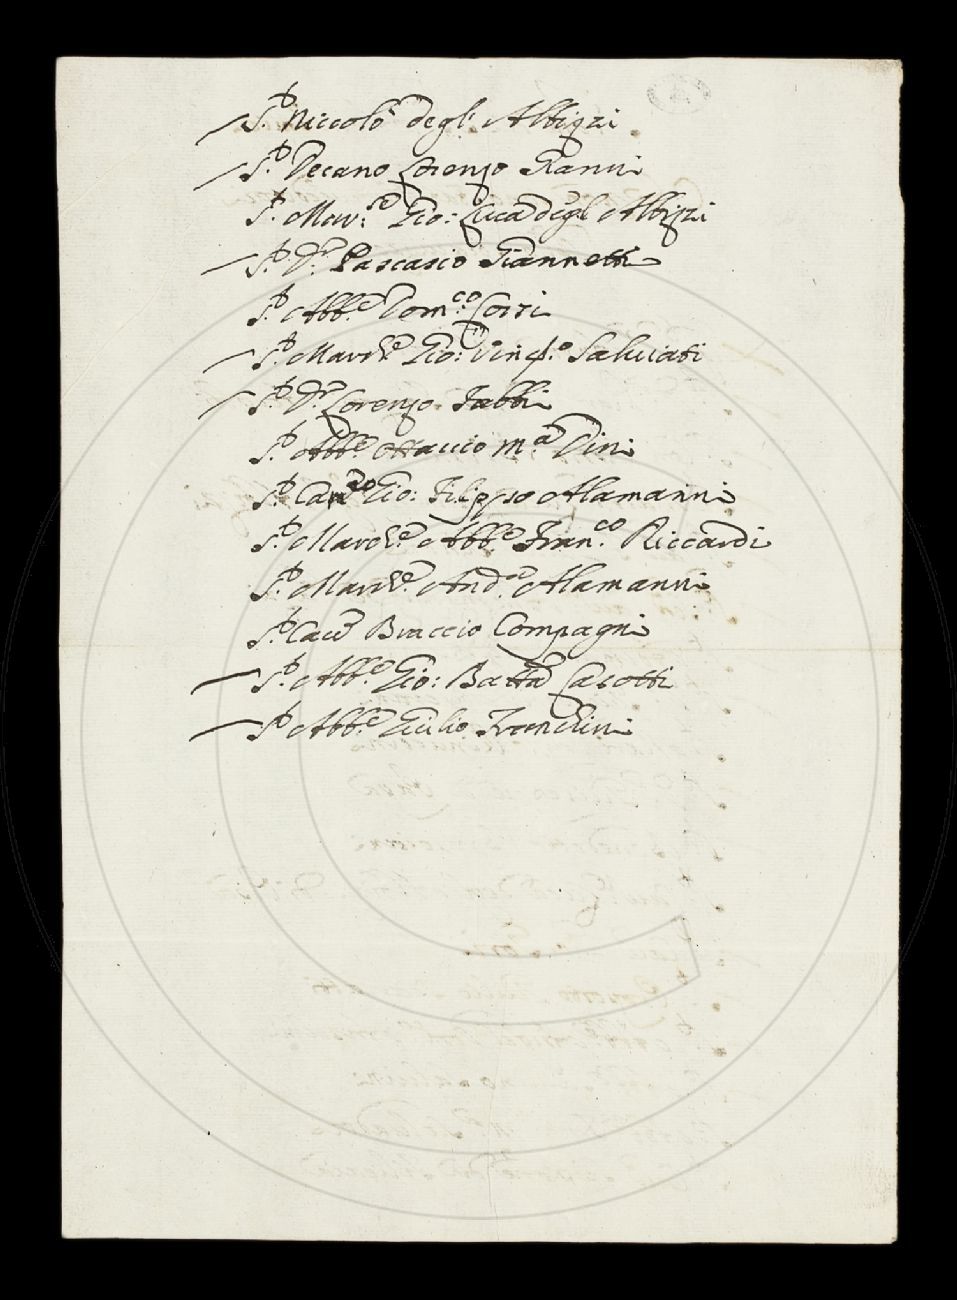 S.r Niccolò degl' Albizzi
S.r Decano Lorenzo Gianni
S.r Mar.se Gio: Luca degl' Albizzi
S.r D.r Pascasio Giannetti
S.r Abb.e Dom.co Corsi
S.r March.e Gio: Vinc.o Salviati
S.r D.r Lorenzo Fabbri
S.r Abb.e Ottavio M.a Dini
S.r Can.co Gio: Filippo Alamanni
S.r March.e Abb.e Fran.co Riccardi
S.r March.e And.a Alamanni
S.r Cav.e Braccio Compagni
S.r Abb.e Gio: Batta Casotti
S.r Abb.e Giulio Franchini